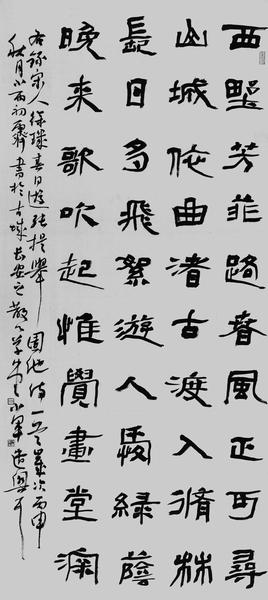 西野芳菲路春風正可尋
山城依曲渚古渡入脩林
長日多飛絮遊人愛綠蔭
晚来歌吹起惟覺畫堂深
右錄宋人徐璣春日遊張提舉園池詩一首歲次丙申
秋月小雨初霽書於古城長安之